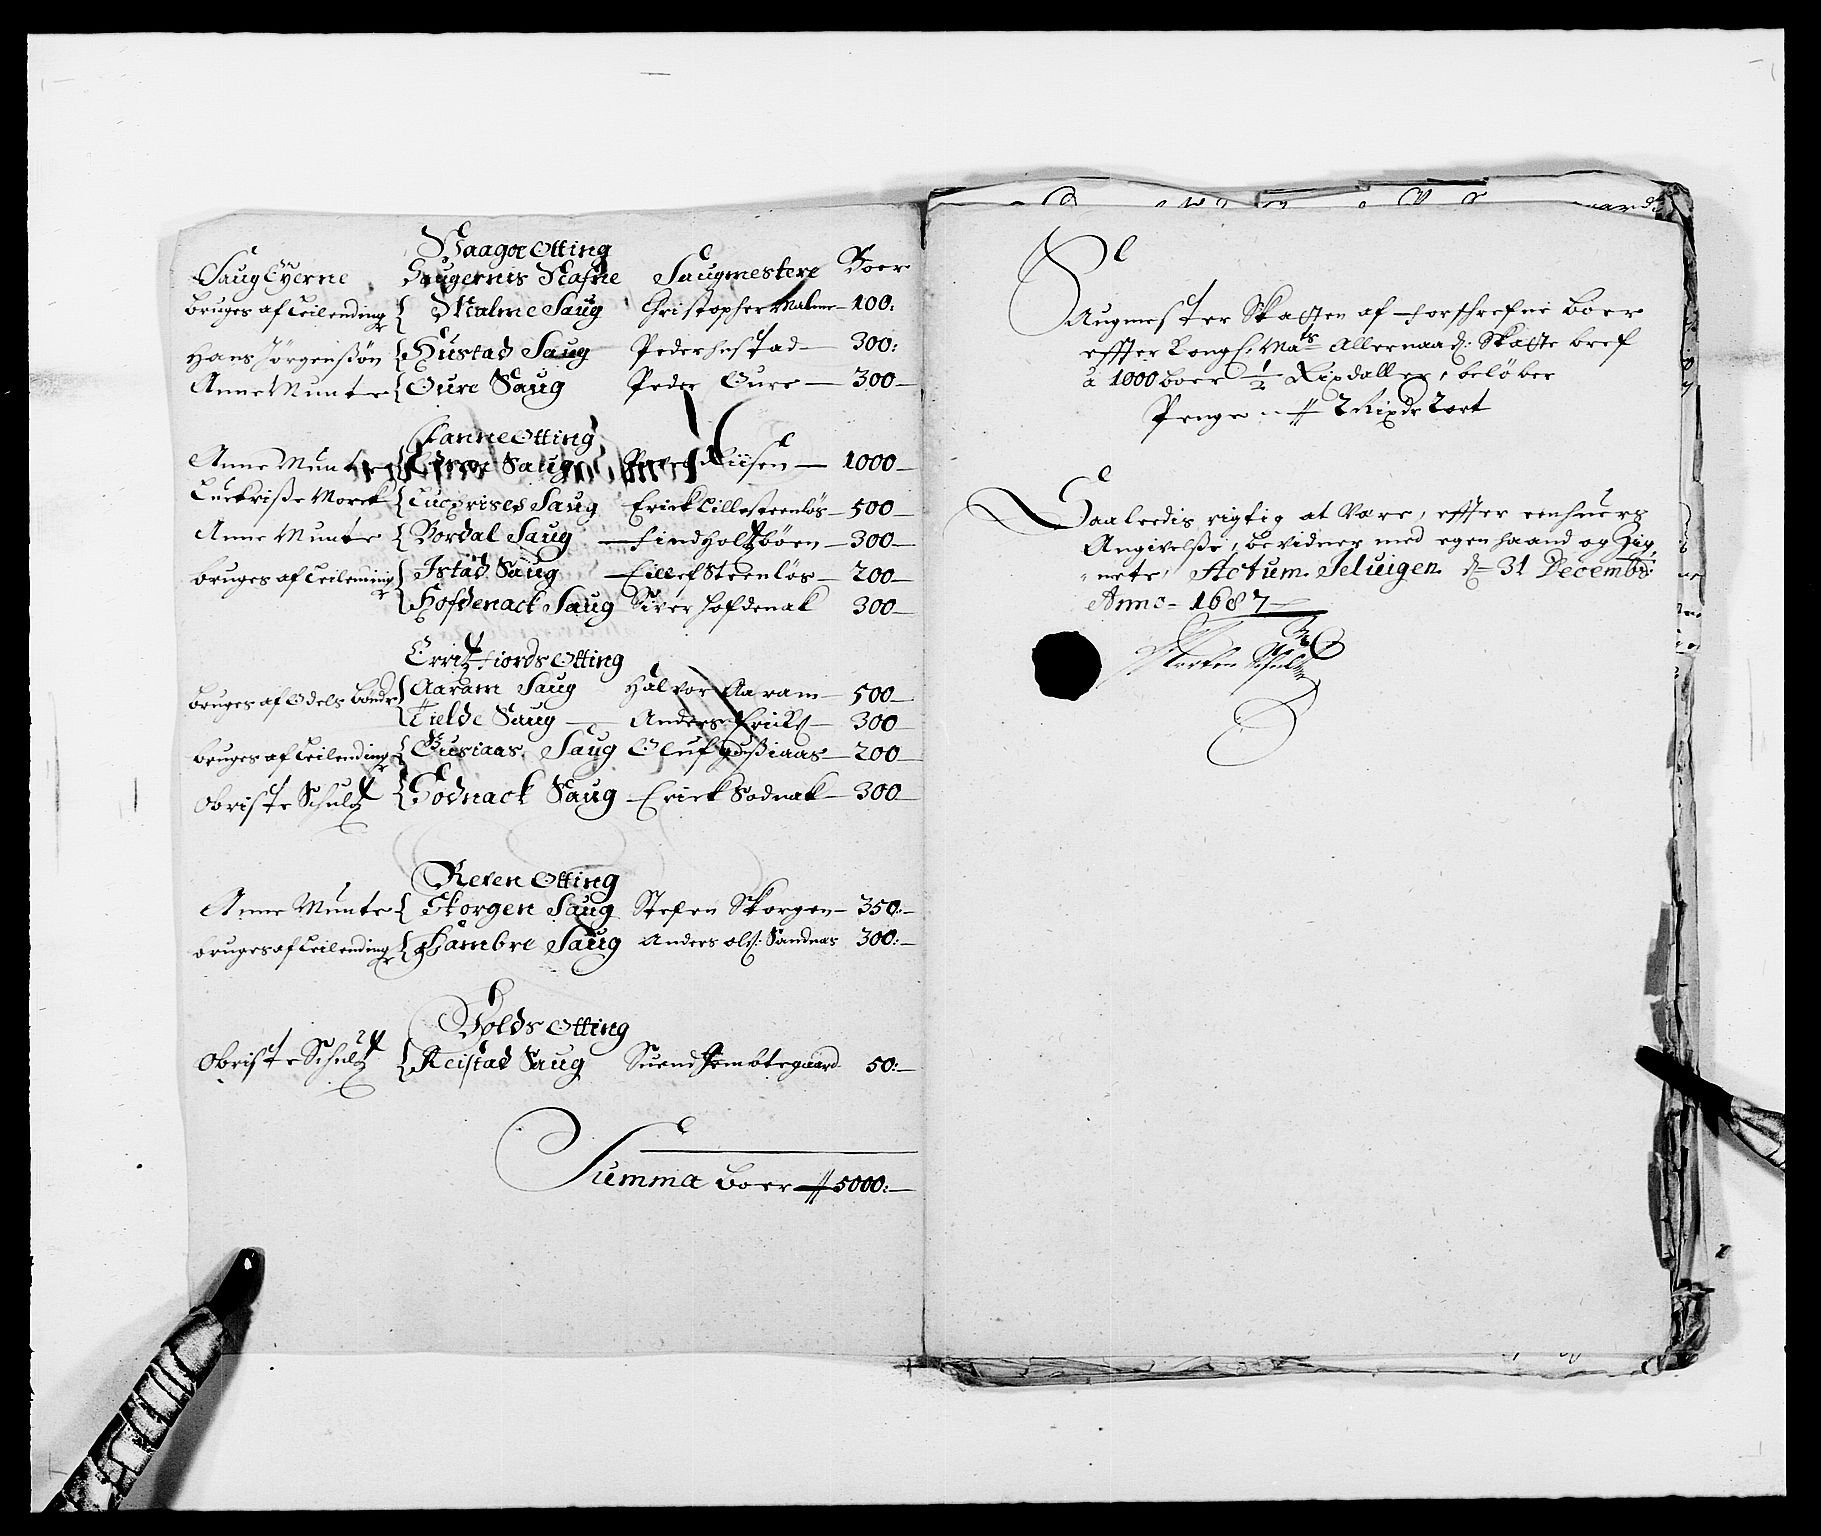 Vaagøe Otting
Saug Eyerne Saugernis Nafne Saugmestere Boer
bruges af Leilending Malme Saug Christopher Malme 100:
Hans Jörgenßön Hustad Saug Peder Hustad 300:
Anne Munte Oure Saug Peder Oure 300
Fanne Otting
Anne Munte Saug Riisen 1000
Morck Saug Erick Lillesteenlös 500
Anne Munte Bordal Saug Find Holtzböen 300
bruges af Leilending Istad Saug Eillef Steenlös 200
Hofdenack Saug Siver Hofdenak 300
Erritzfiords Otting
bruges af Odels bönder Aaram Saug Halvor Aaram 500
Tielde Saug Anders Ericks: 300
bruges af Leilending Gusiaas Saug Oluf Gußiaas 200
Obriste Schultz Sodnack Saug Erick Sodnak 300
Reven Otting
Anne Munte Skorgen Saug Stefen Skorgen 350:
bruges af Leilending Hambre Saug Anders ols: Sandnæs 300:
Volds Otting
Obriste Schultz Neistad Saug Suend 50:
Summa Boer 5000:
Saugmester Skatten af forschrefne boer
effter Kongl: Mats Allernaad: Skatte bref
a 1000 boer 1/2 Rixdaller, belöber
Penge 2 Rixdr 2 ort
Saaledis rigtig at Være, effter eenhuers
Angivelße, bevidner med egen haand og Sig,
nete, Actum Seluigen d 31 Decembr:
Anno 1687